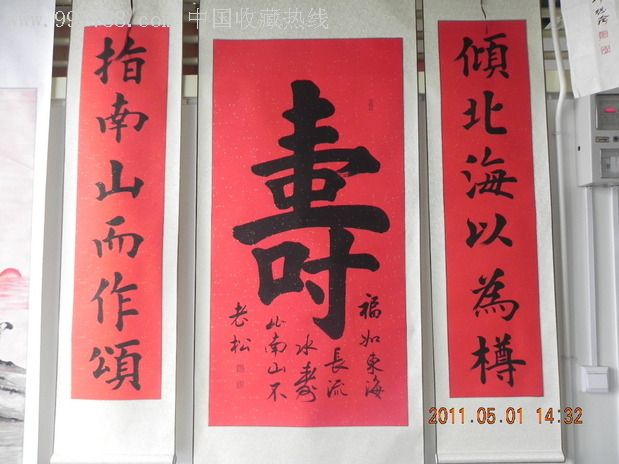 中国收藏热线
傾北海以為樽
壽
福如東海
長流
水壽
比南山不
老松
指南山而作頌
2011.05.01 14:32